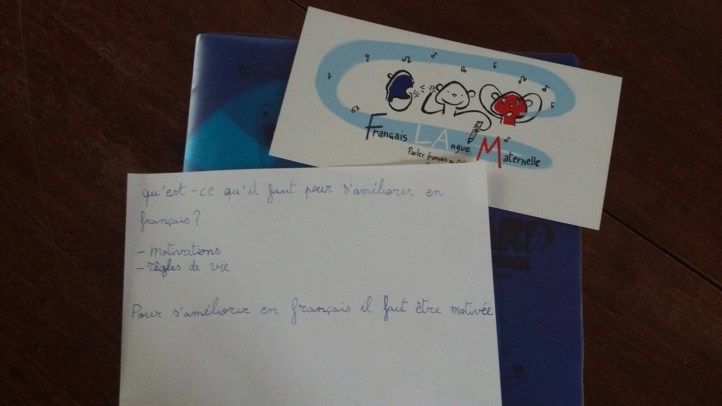 Français LAngue Maternelle
Parler français
qu'est-ce qu'il faut pour s'améliorer en
français?
- motivations
- règles de vie
Pour s'améliorer en français il faut être motivée